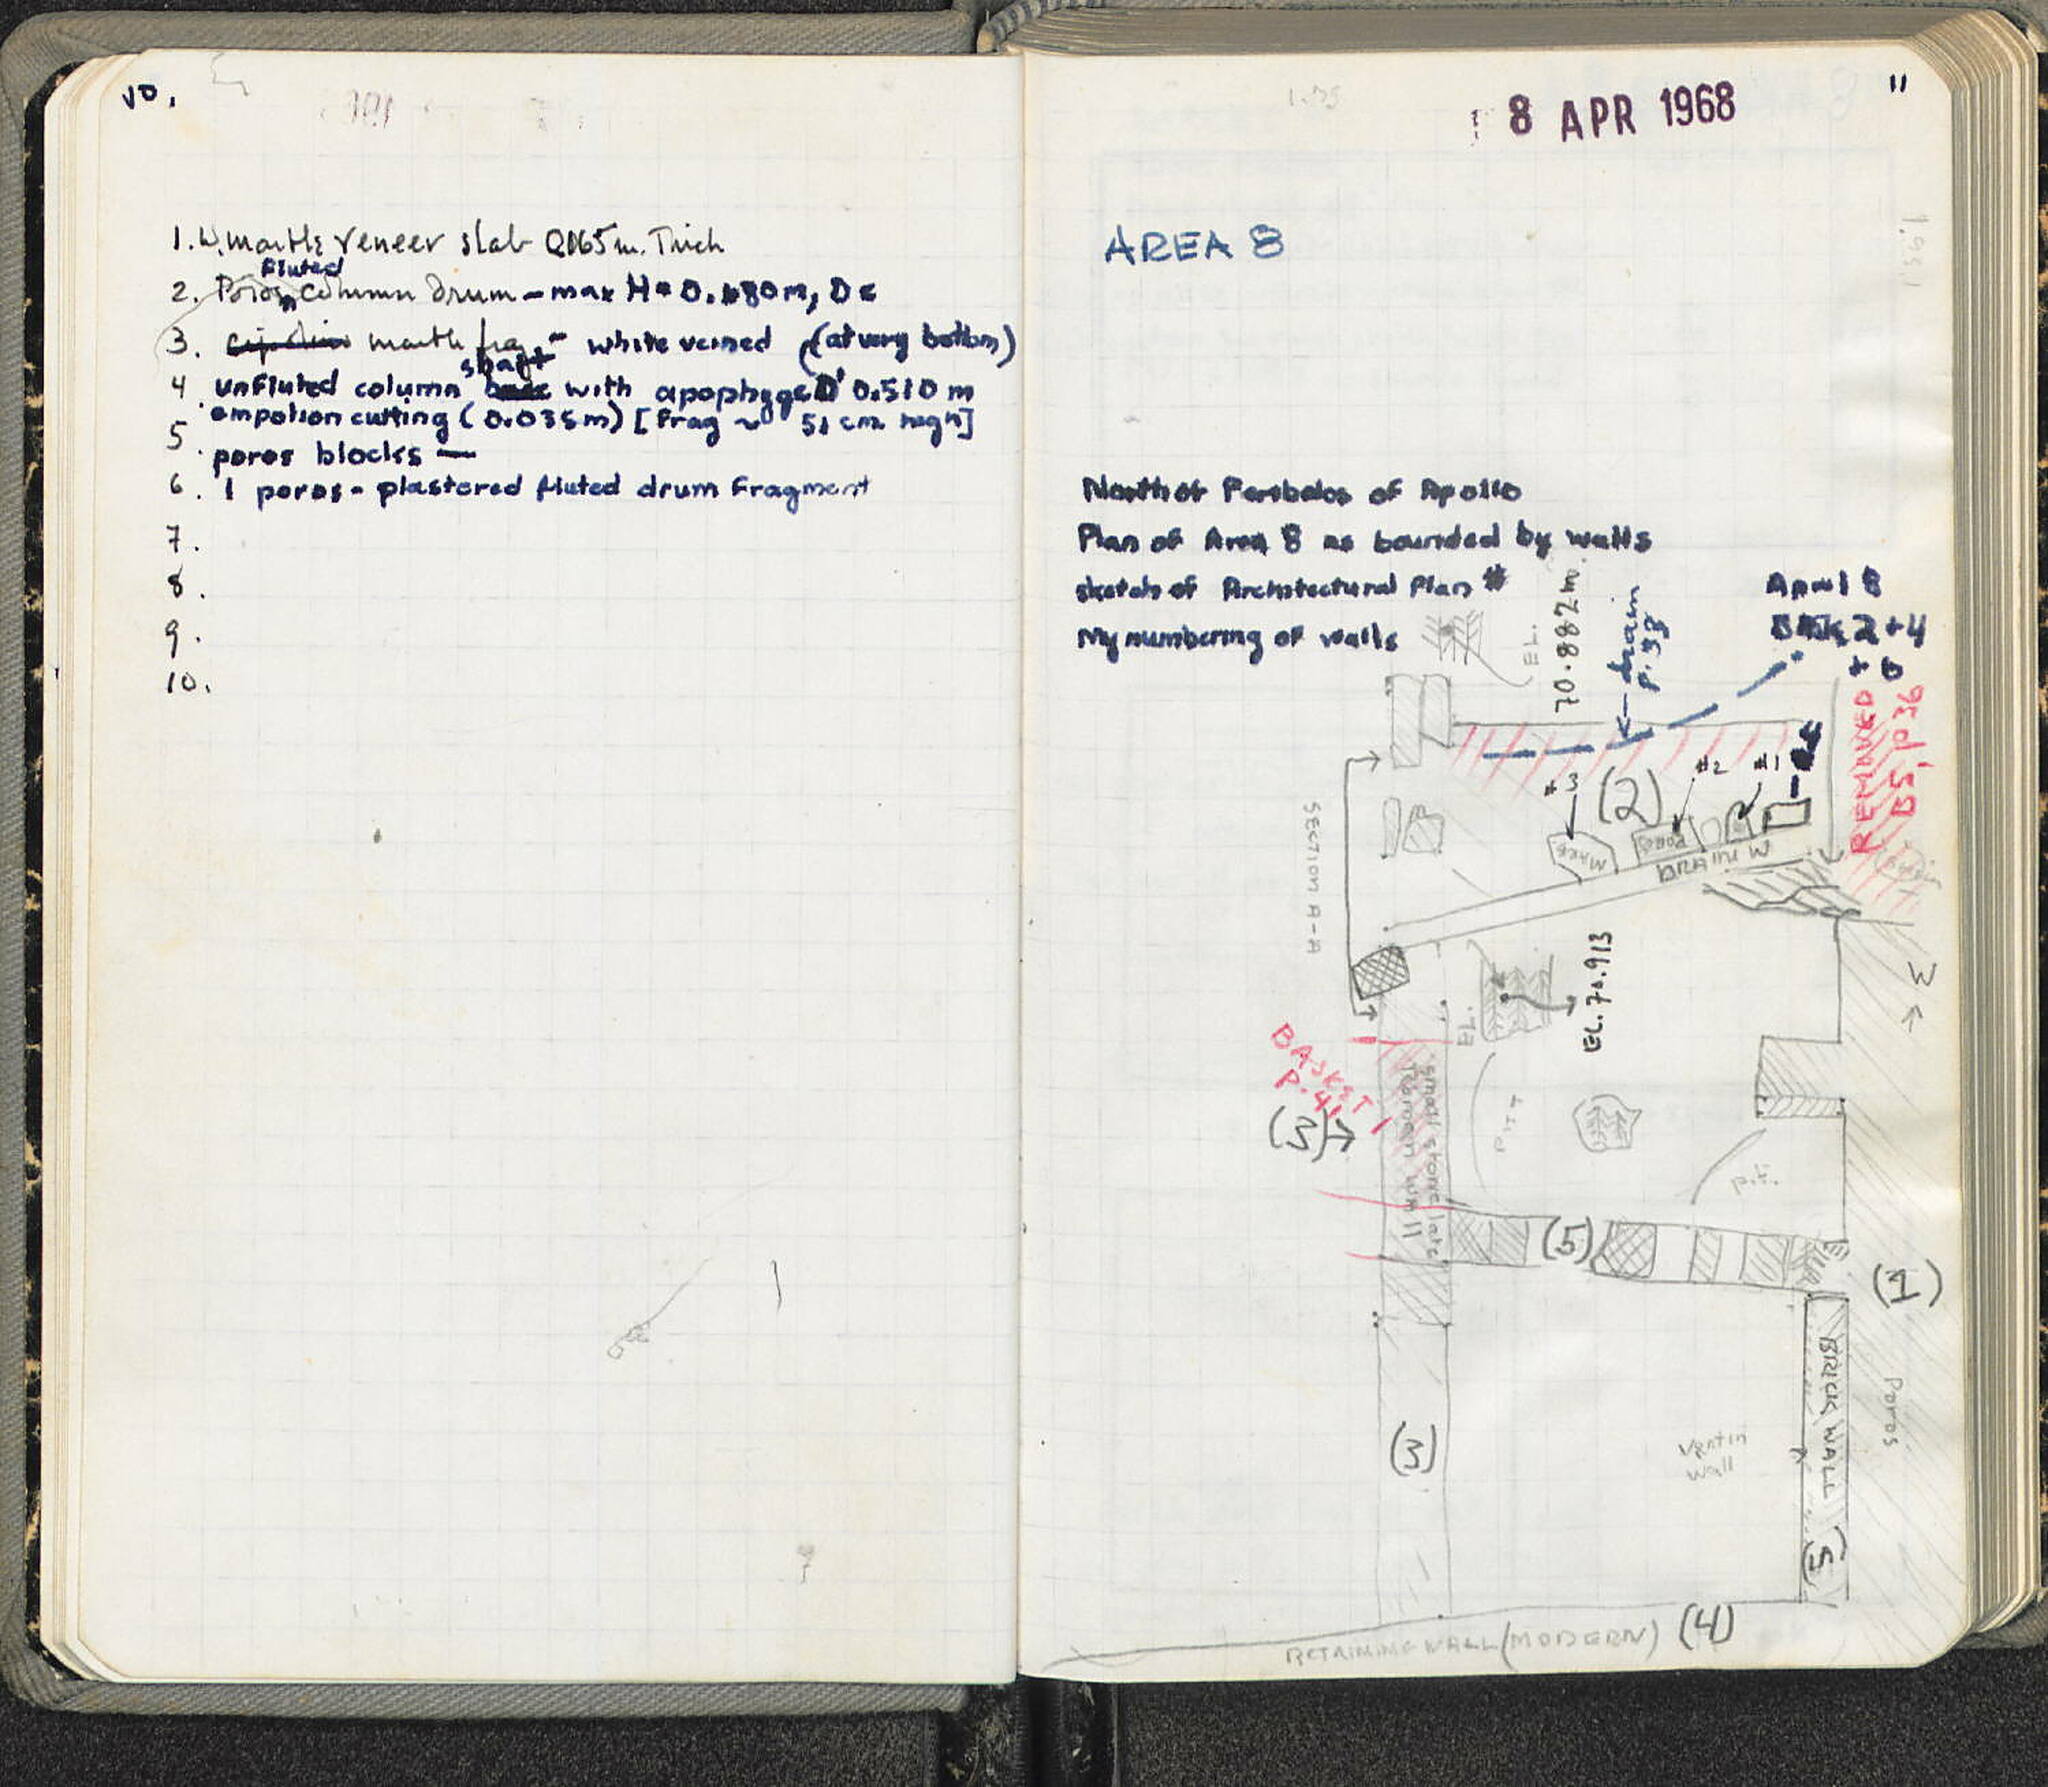 10.
1. W. marble veneer slab 0.065 m. Thick
fluted
2. Poros column drum - max H = 0.480 m, D =
3. marble frag - white veined (at very bottom)
shaft
4 unfluted column with apophyge D 0.510 m
empolion cutting (0.035m) [frag ~ 51 cm high]
5. poros blocks —
6. 1 poros - plastered fluted drum fragment
7.
8.
9.
10.
11
8 APR 1968
AREA 8
North of Peribolos of Apollo
Plan of Area 8 as bounded by walls
sketch of Architectural Plan #
My numbering of walls
April 8
2 + 4
+ 6
EL.
70.882 m.
drain
p. 38
REMOVED
B5 p. 36
#3
(2)
#2
#1
4
MARB
POROS
SECTION A-A
EL.
EL. 70.913
3
BASKET
P. 41
(3)
small stone late
Roman wall
PIT
p.t.
(5)
(1)
BRICK WALL
Poros
(3)
Vent in
wall
(5)
RETAINING WALL (MODERN) (4)